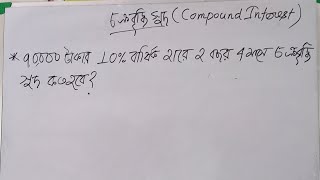 চক্রবৃদ্ধি সুদ (Compound Interest)
* ১০০০০ টাকার 10% বার্ষিক হারে ২ বছর 4 মাসে চক্রবৃদ্ধি
সুদ কত হবে?